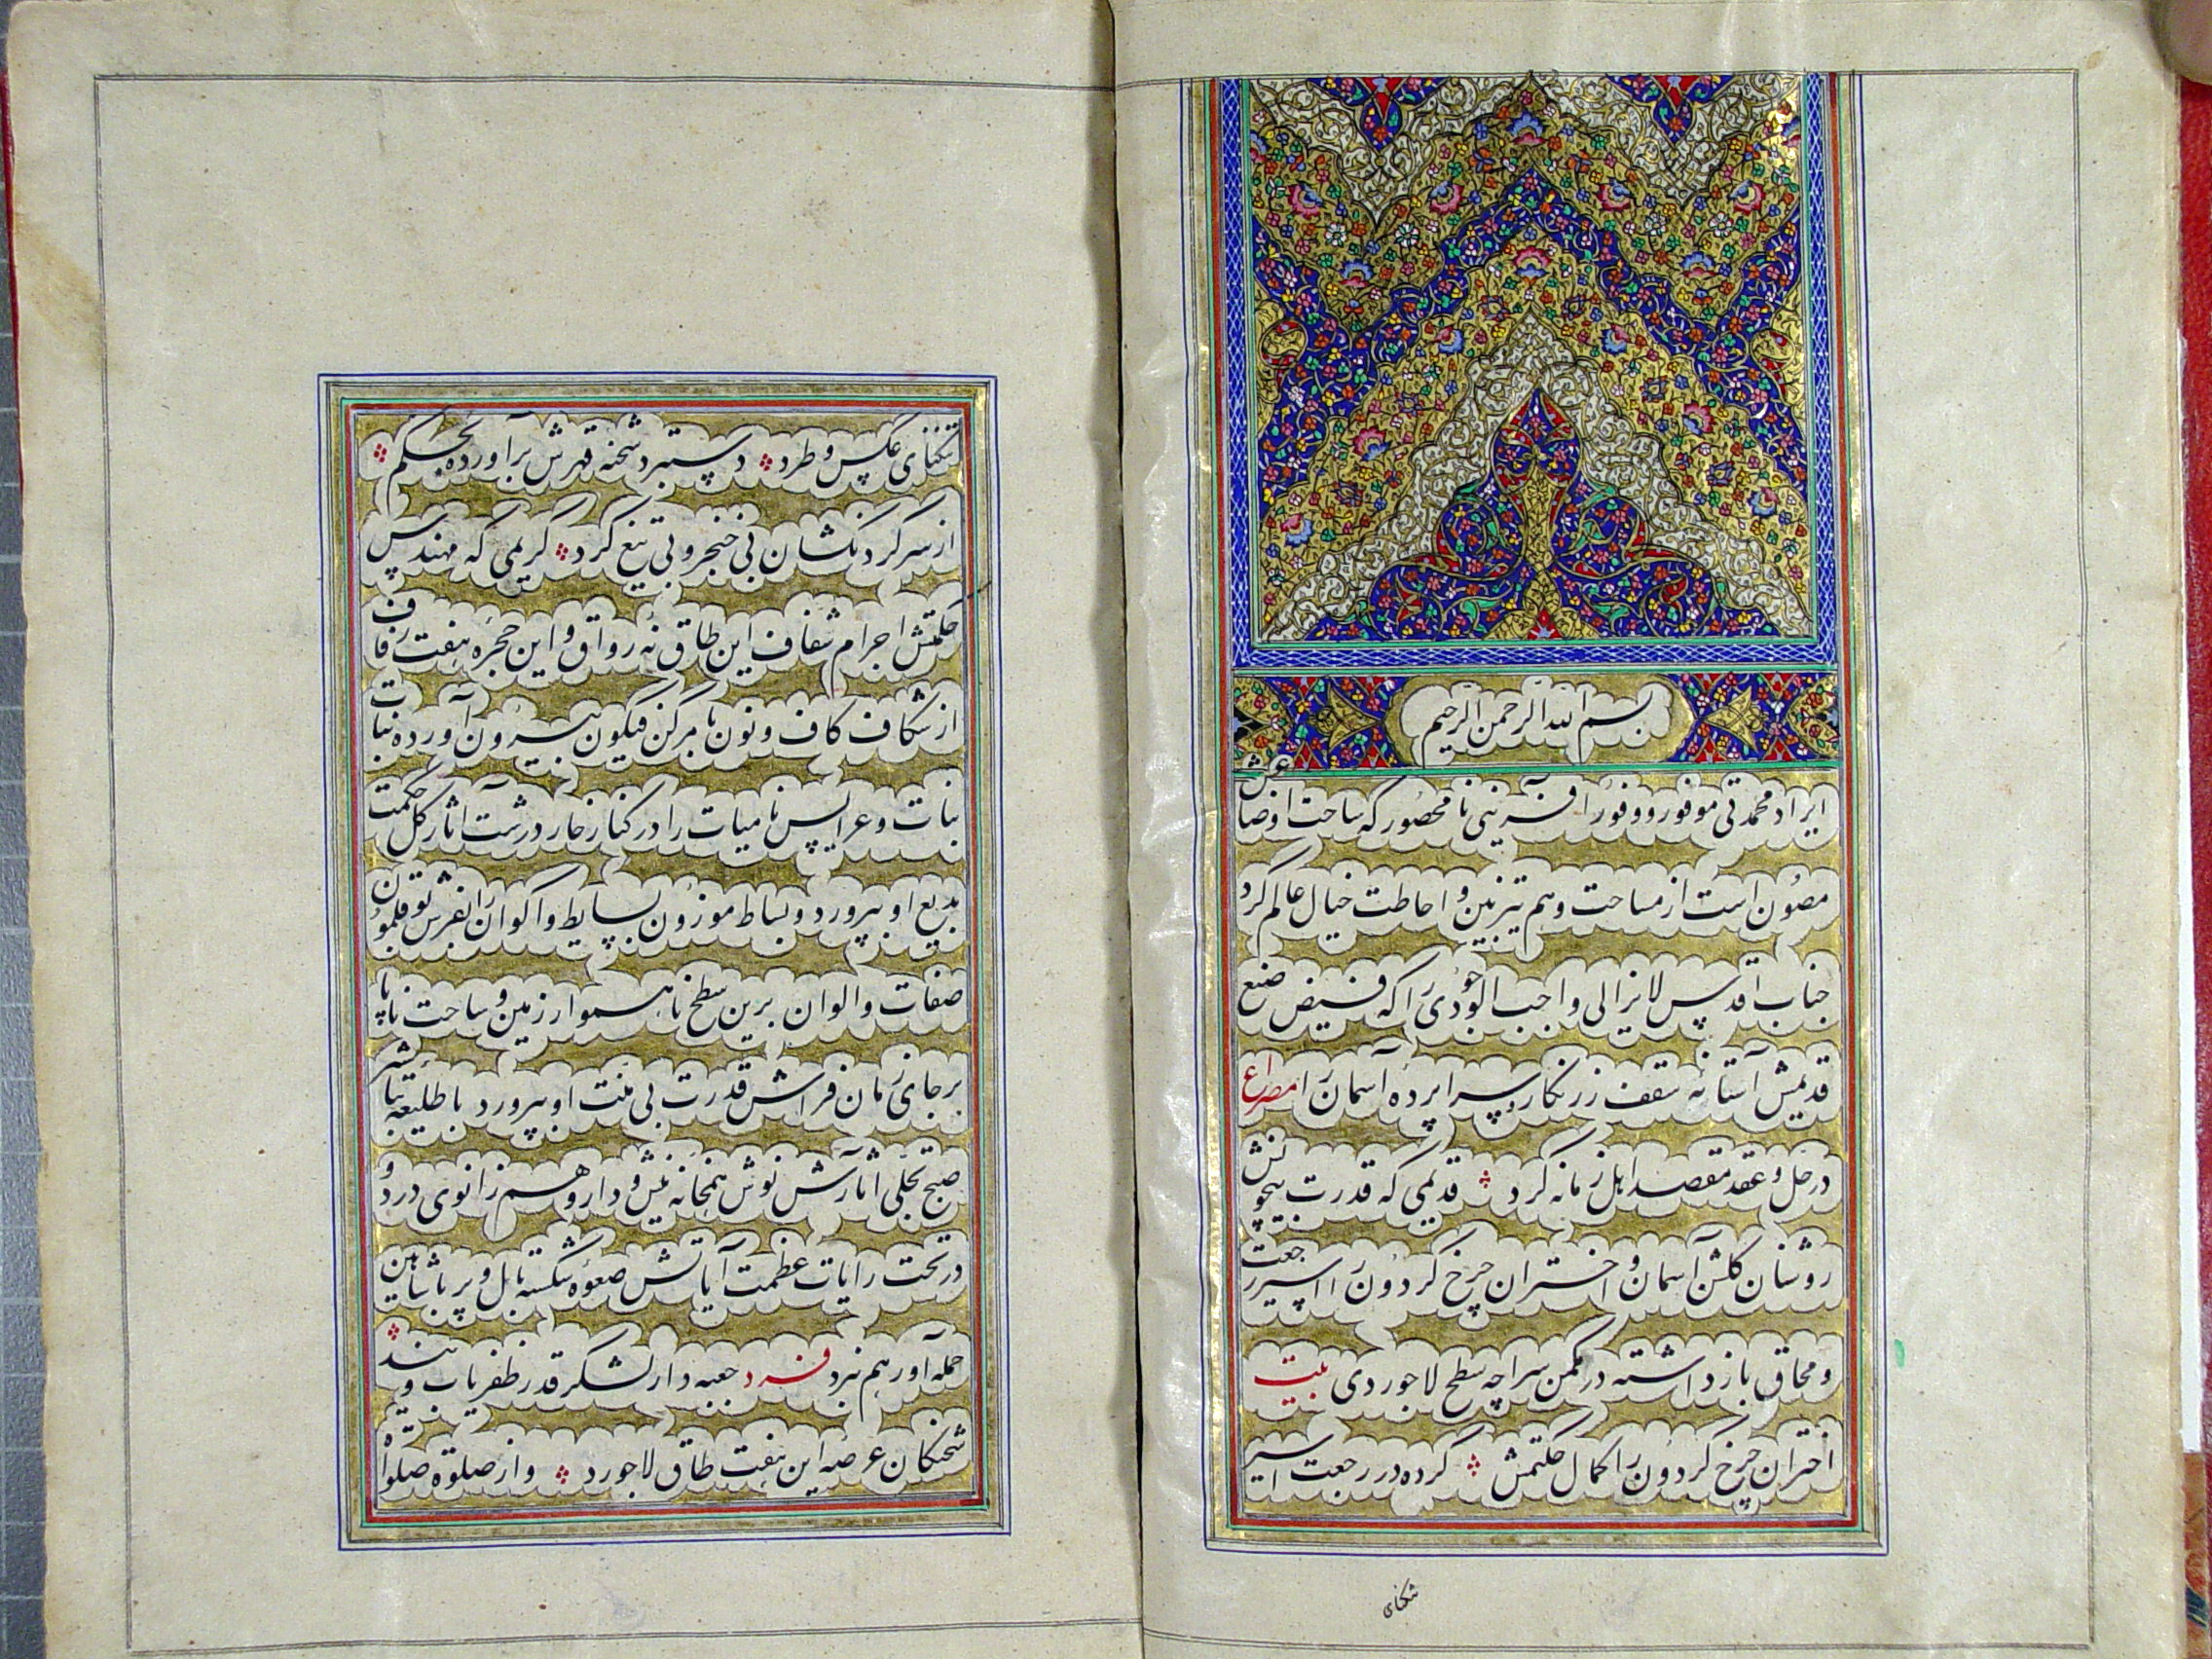 بسم الله الرحمن الرحیم
ایراد محمدتی موفور و وفور آفرینی نامحصور که ساحت اوضا عرش
مصون است از مساحت وهم تیزبین و احاطت خیال عالم گرد
جناب اقدس لایزالی واجب الوجودی را که فیض صنع
قدیمش آستانهٔ سقف زرنگار و سراپردهٔ آسمان را مصراع
در حل و عقد مقصد اهل زمانه کرد قدیمی که قدرت بیچونش
روشنان گلشن آسمان و اختران چرخ گردون را اسیر رجعت
و محاق بازداشته در مکمن سراچه سطح لاجوردی بیت
اختران چرخ گردون را کمال حکمتش کرده در رجعت اسیر
تنگنای عکس و طرد دستبرد شحنه قهرش برآورده بحکم
از سر گردنکشان بی خنجر و بی تیغ گرد کریمی که مهندس
حکمتش اجرام شفاف این طاق نه رواق و این حجره هفت رف
از شکاف کاف و نون تا مرکز قیگون بیرون آورده نبات
نبات و عرایس نامیات را در کنار خار درشت آثار گل حکمت
بدیع او بپرورد و بساط موزون بسایط و اکوان را بفرش بوقلمون
صفات و الوان برین سطح ناهموار زمین و ساحت ناپا
برجای زمان فراش قدرت بی منت او بپرورد با طلیعه تباشیر
صبح تجلی آثارش نوش همخانه نیش و دارو هم زانوی درد و
در تحت رایات عظمت آیاتش صعوه شکسته بال و پر با شاهین
حمله آور هم نبرد فرد جعبه دار لشکر قدر ظفریاب ویند
شحنگان عرصه این هفت طاق لاجورد و از صلوة صلوات